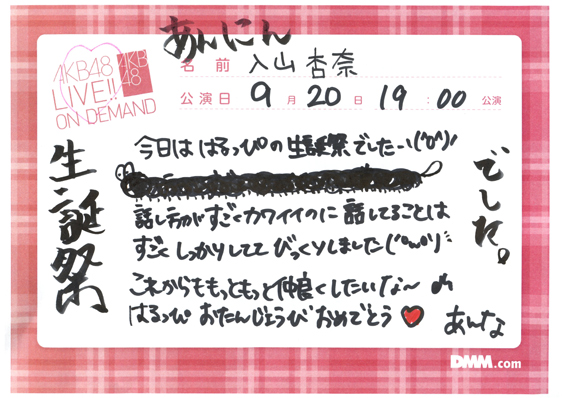 あんにん
AKB48
LIVE!!
ON DEMAND
AKB
48
名前 入山 杏奈
公演日 9月20日 19:00 公演
生誕祭
でした。
今日は はるっぴの 生誕祭でしたー\(^o^)/
話し方がすごくカワイイのに 話してることは
すごくしっかりしてて びっくりしました(^ω^)
これからももっともっと仲良くしたいな〜
はるっぴ おたんじょうび おめでとう
あんな
DMM.com